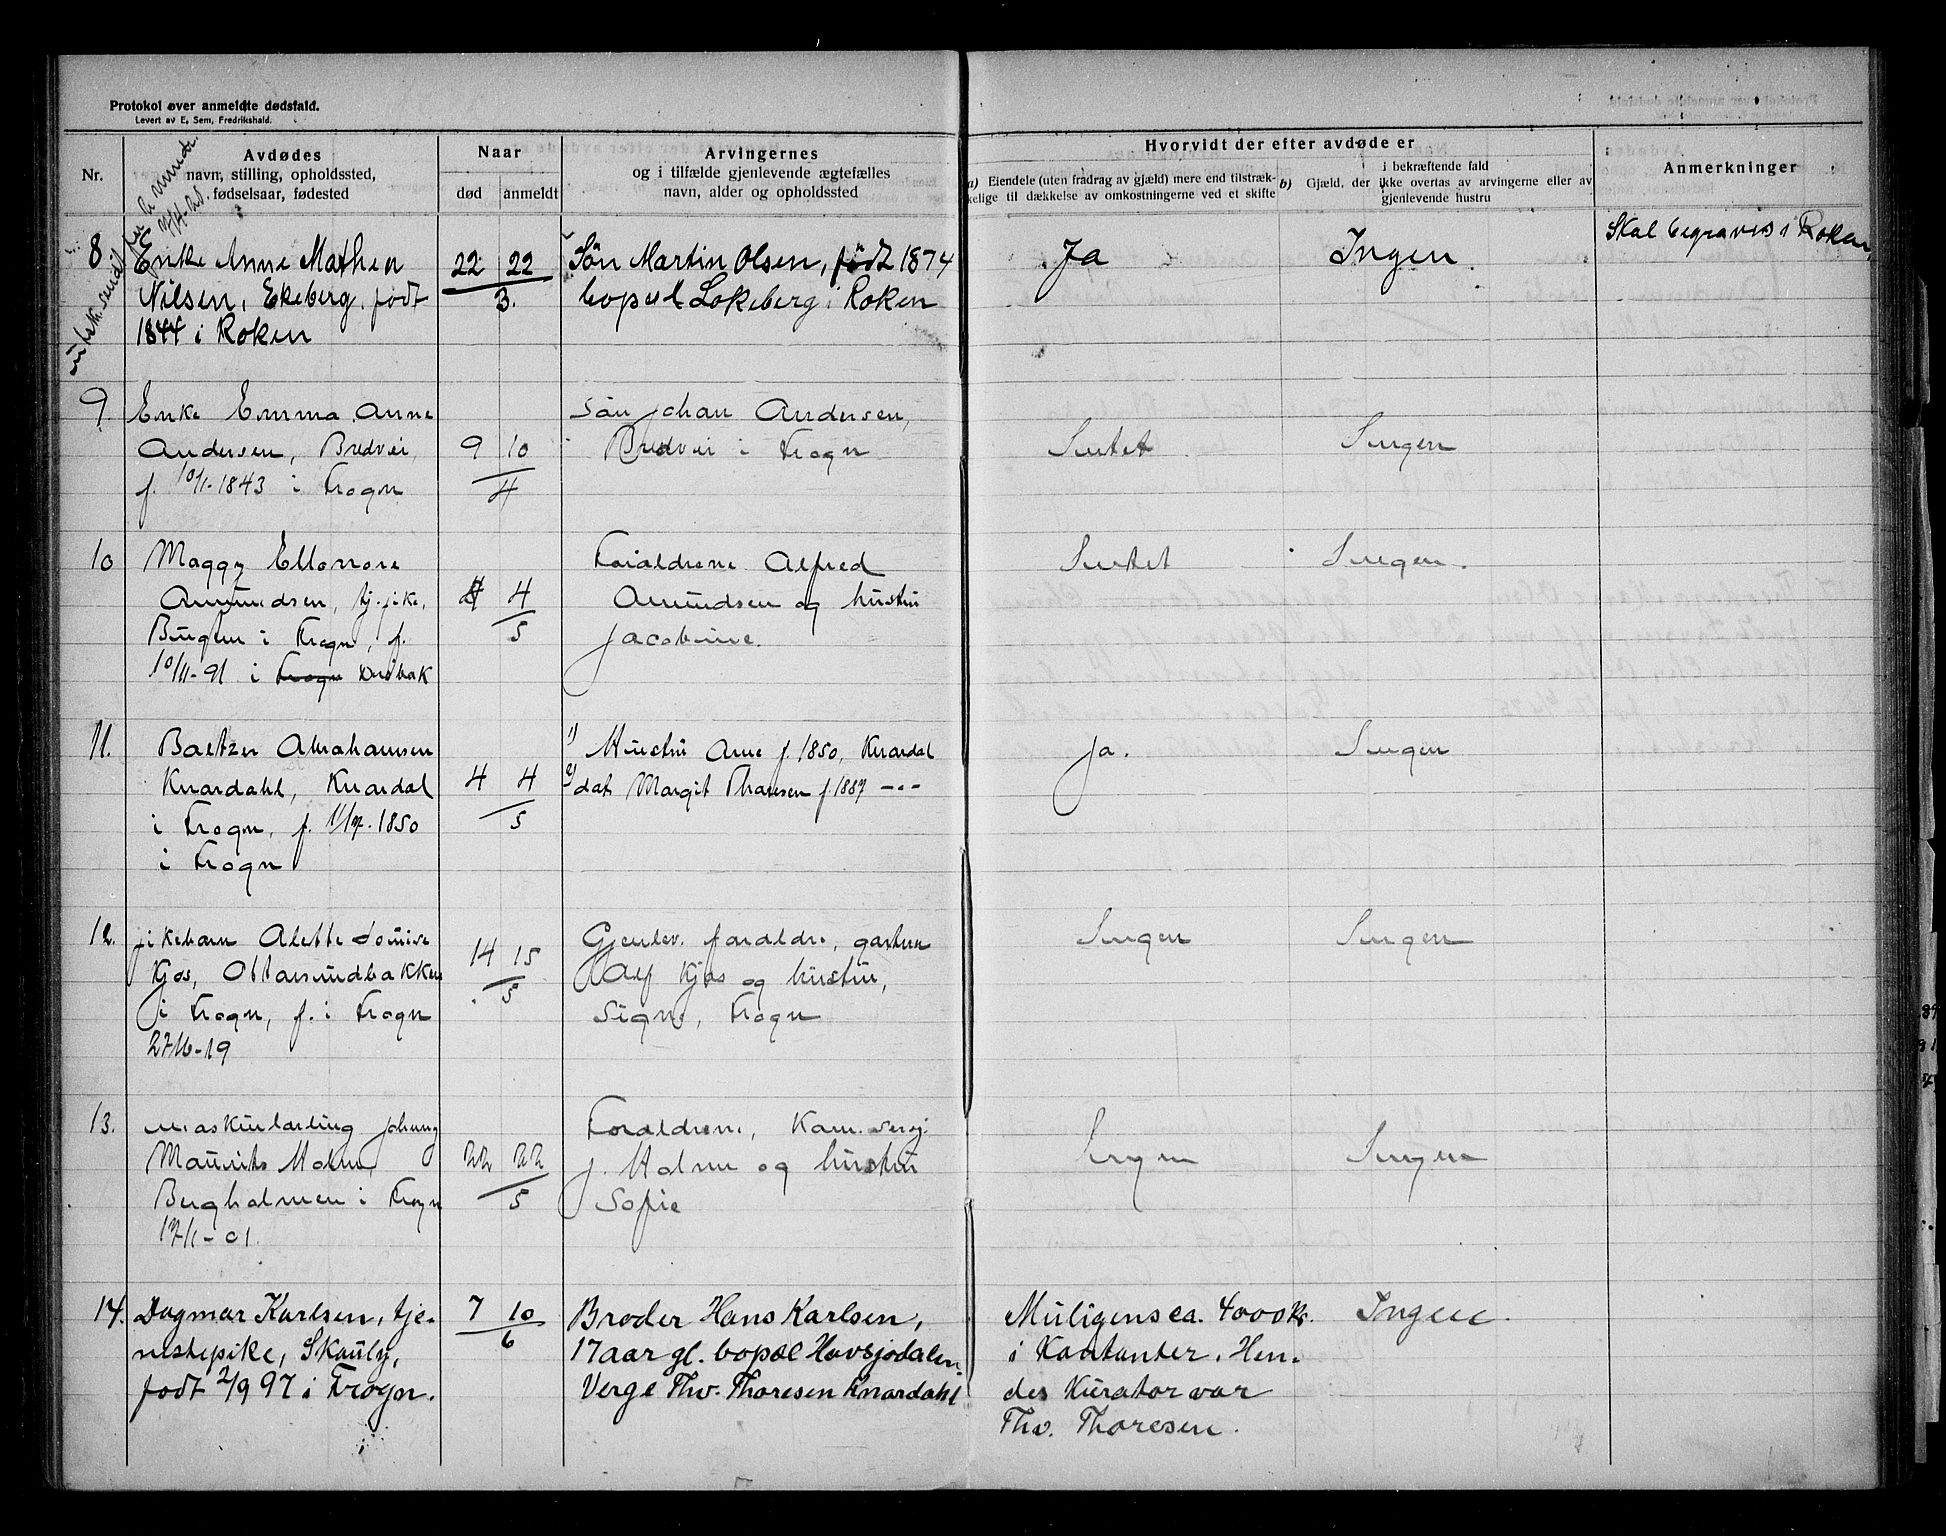 Protokol over anmeldte dødsfald.
Levert av E. Sem, Fredrikshald.
Nr.
Avdødes
navn, stilling, opholdssted,
fødselsaar, fødested
Naar
død
anmeldt
Arvingernes
og i tilfælde gjenlevende ægtefælles
navn, alder og opholdssted
Hvorvidt der efter avdøde er
a) Eiendele (uten fradrag av gjæld) mere end tilstræk-
kelige til dækkelse av omkostningerne ved et skifte
b) Gjæld, der
i bekræftende fald
ikke overtas av arvingerne eller av
gjenlevende hustru
Anmerkninger
8
Enke Anne Mathea
Nilsen, Ekeberg, født
1844 i Røken
22 22
3.
Søn Martin Olsen, født 1874
bopæl Løkeberg i Røken
Ja
Ingen
Skal begraves i Røken
9.
Enke Emma Anne
Andersen, Bredvei,
f. 10/1-1843 i Frogn
9 10
4
Søn Johan Andersen,
Bredvei i Frogn
Intet
Ingen
10
Maggy Ellonore
Amundsen, tj. pike,
i Frogn, f.
10/11-91 i Frogn Drøbak
4 4
5
Forældrene Alfred
Amundsen og hustru
Jacobine.
Intet
Ingen.
11.
Baltzer Abrahamsen
Knardahl, Knardal
i Frogn, f. 1850
i Frogn
4 4
5
1) Hustru Anne f. 1850, Knardal
2) dat. Margit Thoresen f. 1887 -"-
Ja.
Ingen
12.
Pikebarn Alette Louise
Kjøs, Ottarsundbakken
i Frogn, f. i Frogn
27/6-19
14 15
5
Gjenlev. forældre, gartner
Alf Kjøs og hustru,
Signe, Frogn
Ingen
Ingen
13.
Maskinlærling Johnny
Mauritz Holm
Bergholmen i Frogn
17/1-01.
22 22
5
Forældrene,
J. Holm og hustru
Sofie
Ingen
Ingen
14.
Dagmar Karlsen, tje-
nestepike, Skauly,
født 2/9 97 i Frogn.
7 10
6
Broder Hans Karlsen,
17 aar gl. bopæl Havsjødalen
Verge Thv. Thoresen Knardahl
Muligens ca. 4000 kr.
i Kontanter. Hen-
des Kurator var
Thv. Thoresen.
Ingen.